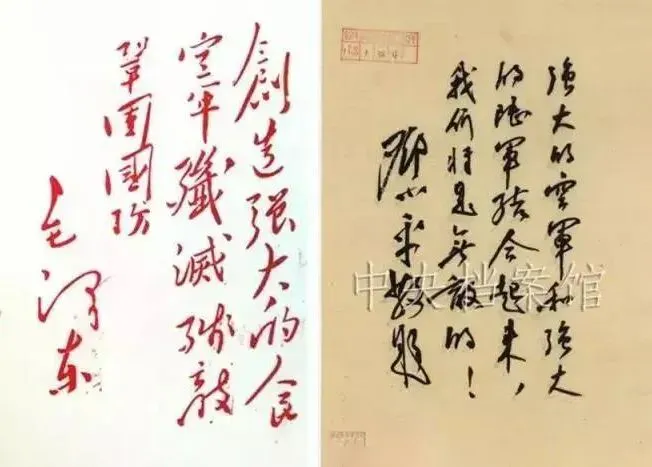 創造强大的人民
空军殲滅残敵
鞏固國防
毛泽东
强大的空軍和强大
的陸軍结合起来，
我们将是无敵的！
邓小平敬题
中央档案馆